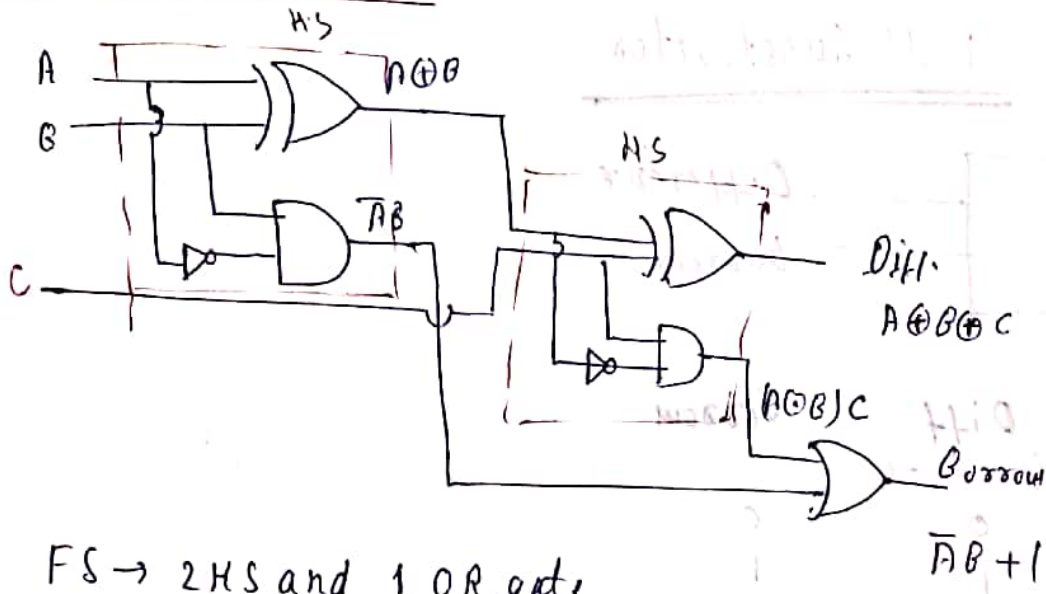 H.S
A
A⊕B
B
H.S
A̅B
Diff.
C
A⊕B⊕C
(A⊙B)C
Borrow
A̅B + (
FS → 2HS and 1 OR gate